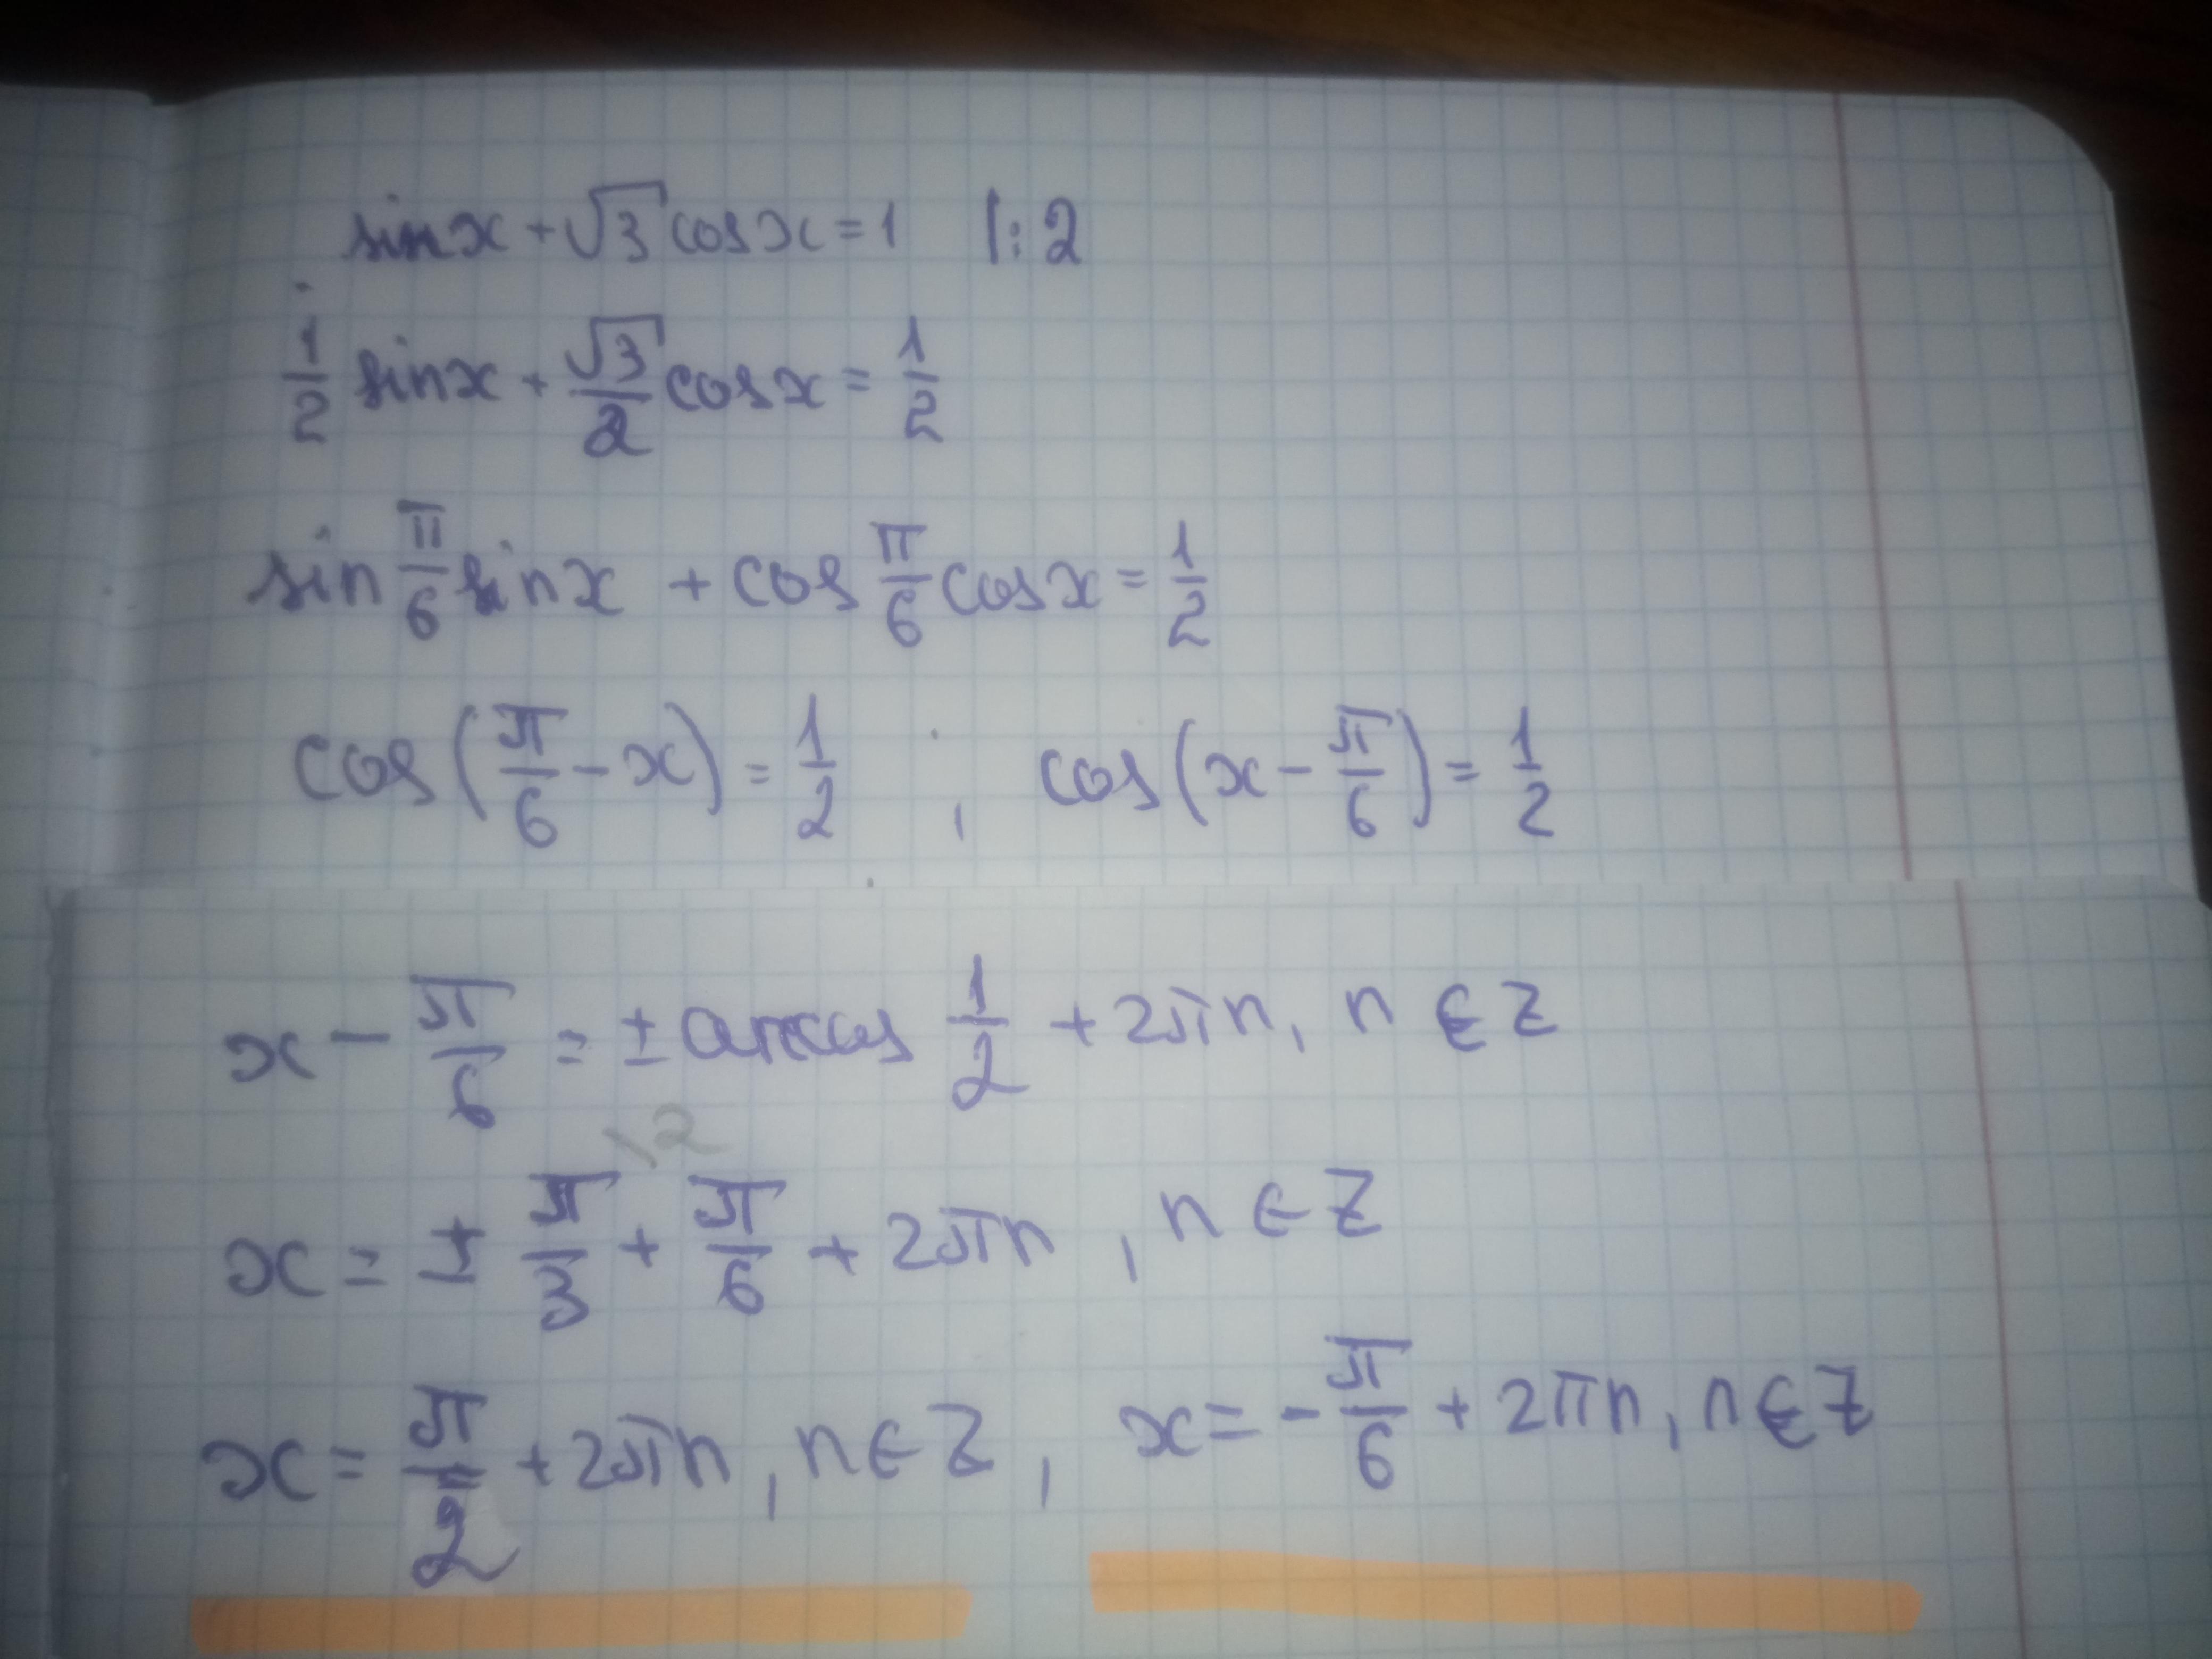 sinx + √3 cosx = 1 |: 2
1/2 sinx + √3/2 cosx = 1/2
sin π/6 sinx + cos π/6 cosx = 1/2
cos(π/6 - x) = 1/2 , cos(x - π/6) = 1/2
x - π/6 = ± arccos 1/2 + 2πn, n ∈ Z
x = ± π/3 \2 + π/6 + 2πn, n ∈ Z
x = π/2 + 2πn, n ∈ Z, x = - π/6 + 2πn, n ∈ Z